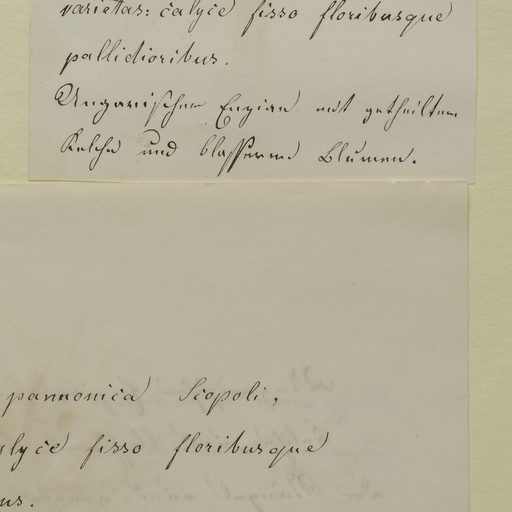 varietas: calyce fisso floribusque
pallidioribus.
Ungarischer Enzian mit getheiltem
Kelche und blasseren Blumen.
pannonica Scopoli,
alyce fisso floribusque
us.